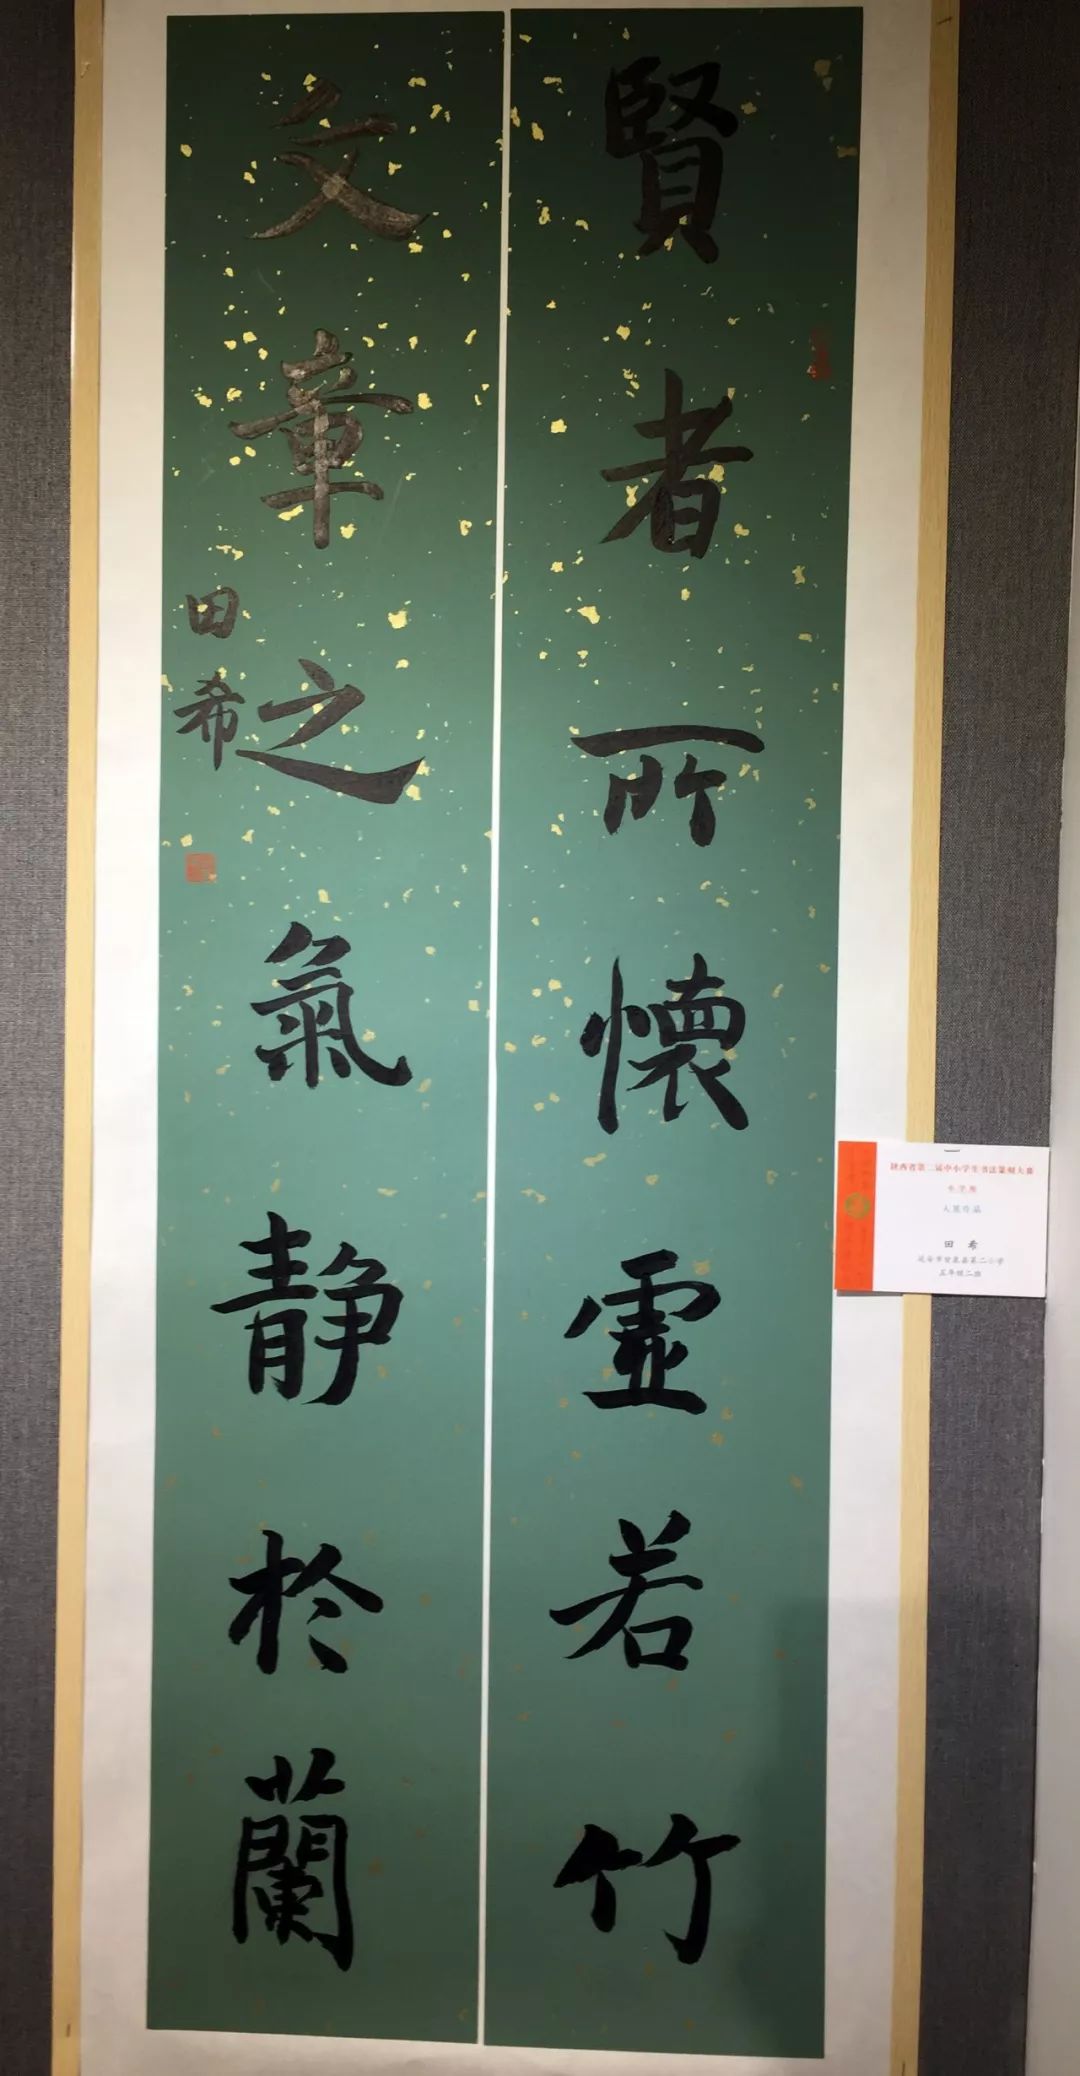 賢者所懷虛若竹
文章之氣静於蘭
田希
陕西省第二届中小学生书法篆刻大赛
小学组
入展作品
田 希
延安市甘泉县第二小学
五年级二班